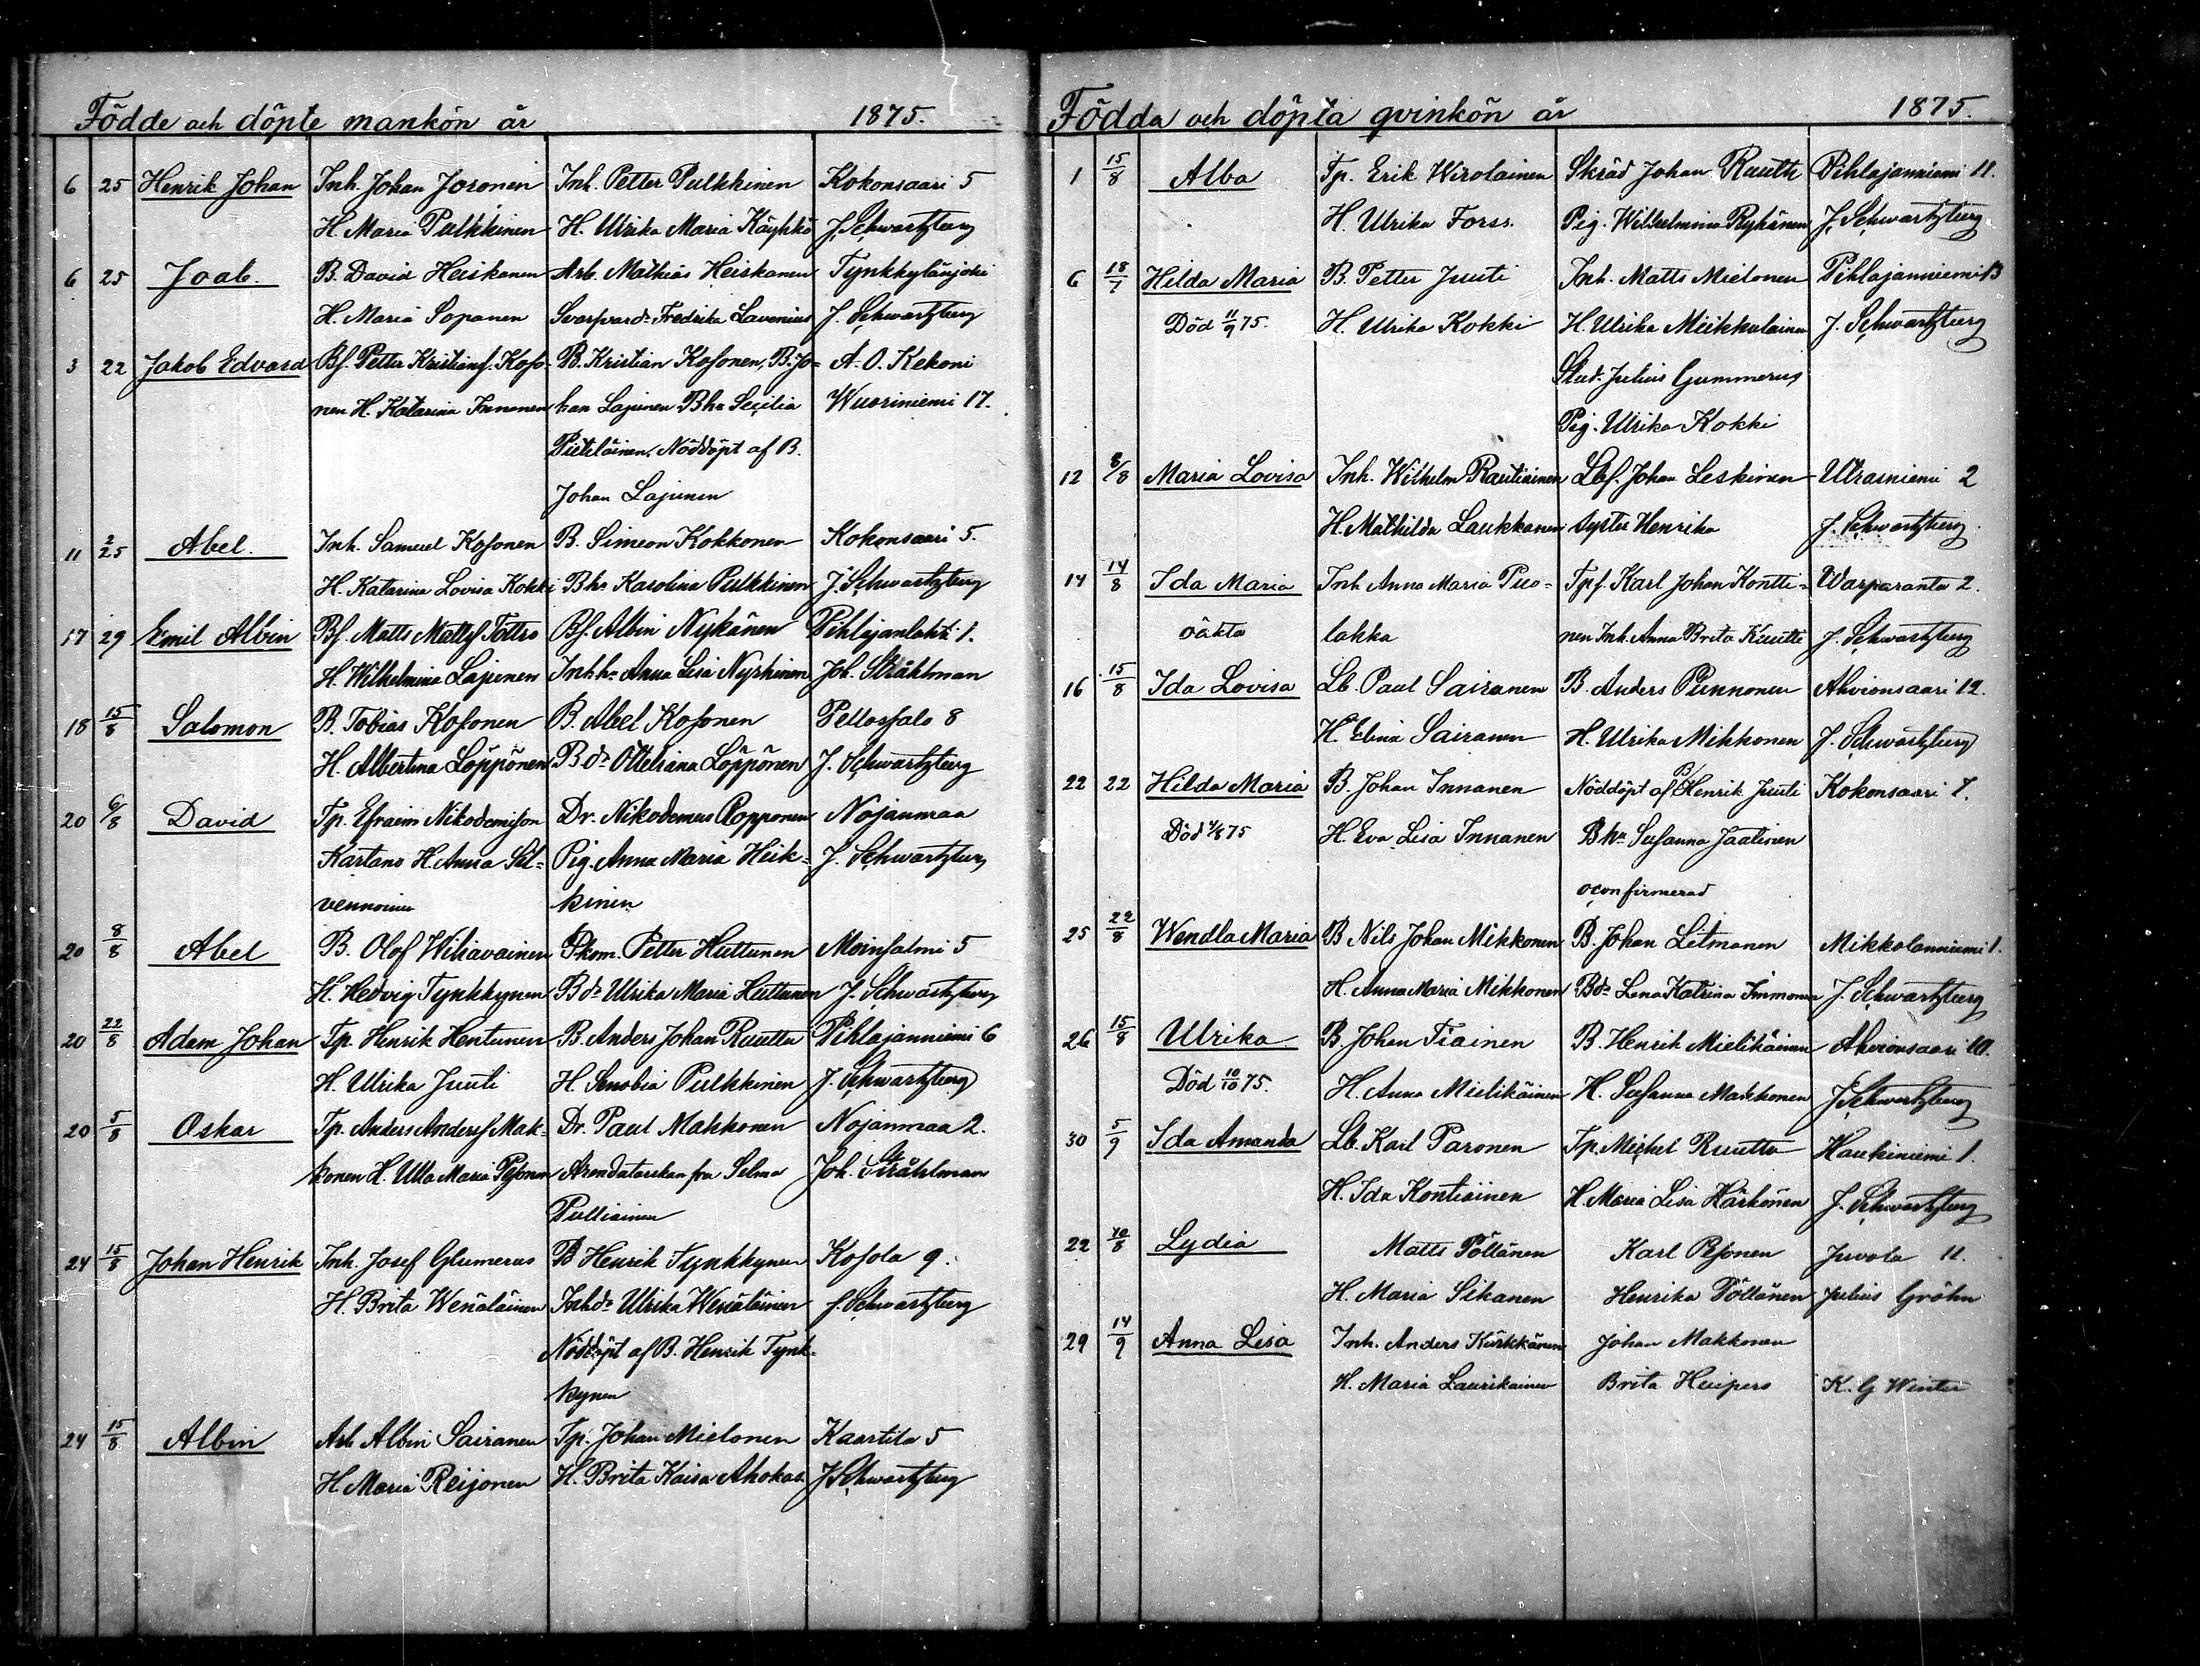 Födde och döpte mankön år 1875.
6 25 Henrik Johan Inh. Johan Joronen Inh. Petter Pulkkinen Kokonsaari 5
H. Maria Pulkkinen H. Ulrika Maria Käyhkö J. Schwartzberg
6 25 Joab. B. David Heiskanen Arb. Mathias Heiskanen Tynkkylänjoki
H. Maria Sopanen Fredrika Lavenius J. Schwartzberg
3 22 Jakob Edvard Bf. Petter Kristians. Koso- B. Kristian Kosonen, B. Jo- A. O. Kekoni
nen H. Katarina Innanen han Lajunen Bhu Secilia Wuoriniemi 17.
Pietiläinen. Nöddöpt af B.
Johan Lajunen
11 2/25 Abel. Inh. Samuel Kosonen B. Simeon Kokkonen Kokonsaari 5.
H. Katarina Lovisa Kokki Bhu Karolina Pulkkinen J. Schwartzberg
17 29 Emil Albin Bf. Matts Mattsf Tattro Bf. Albin Nykänen Pihlajanlahti 1.
H. Wilhelmina Lajunen Inhh. Anna Lisa Nyrhinen Joh. Stråhlman
18 15/8 Salomon B. Tobias Kosonen B. Abel Kosonen Pellossalo 8
H. Albertina Löppönen Bdr Otteliana Löppönen J. Schwartzberg
20 6/8 David Tp. Efraim Nikodemison Dr. Nikodemus Ropponen Nojanmaa
Kartano H. Anna Sil- Pig. Anna Maria Heik- J. Schwartzberg
vennoinen kinen
20 8/8 Abel B. Olof Wiliavainen Petter Huttunen Moinsalmi 5
H. Hedvig Tynkkynen Bdr Ulrika Maria Huttunen J. Schwartzberg
20 22/8 Adam Johan Tp. Henrik Hentunen B. Anders Johan Ruuttu Pihlajanniemi 6
H. Ulrika Juuti H. Senobia Pulkkinen J. Schwartzberg
20 5/8 Oskar Tp. Anders Andersf Mak- Dr. Paul Makkonen Nojanmaa 2.
konen H. Ulla Maria Pesonen Arendatorskan fru Selma Joh. Stråhlman
Pulliainen
24 15/8 Johan Henrik Inh. Josef Glumerus B Henrik Tynkkynen Kosola 9.
H. Brita Wenäläinen Inhdr Ulrika Wenäläinen J. Schwartzberg
Nöddöpt af B. Henrik Tynk-
kynen
24 15/8 Albin Arb Albin Sairanen Tp. Johan Mielonen Kaartila 5
H Maria Reijonen H. Brita Kaisa Ahokas J Schwartzberg
Födda och döpta qvinkön år 1875.
1 15/8 Alba Tp. Erik Wirolainen Skräd Johan Ruuth Pihlajanniemi 11.
H. Ulrika Forss. Pig. Wilhelmina Rykänen J. Schwartzberg
6 18/7 Hilda Maria B. Petter Juuti Inh. Matts Mielonen Pihlajanniemi 13
Död 11/9 75. H. Ulrika Kokki H. Ulrika Miikkulainen J. Schwartzberg
Stud. Julius Gummerus
Pig. Ulrika Kokki
12 8/8 Maria Lovisa Inh. Wilhelm Rautiainen Lbf. Johan Leskinen Utrasniemi 2
H. Mathilda Laukkanen syster Henrika J. Schwartzberg
14 14/8 Ida Maria Inh Anna Maria Puo- Tpf. Karl Johan Kontti- Warparanta 2.
oäkta lakka nen Inh. Anna Brita Kuutti J. Schwartzberg
16 15/8 Ida Lovisa Lb. Paul Sairanen B. Anders Punnonen Ahvionsaari 12.
H. Elina Sairanen H. Ulrika Mikkonen J. Schwartzberg
22 22 Hilda Maria B. Johan Innanen Nöddöpt af B/Henrik Juuti Kokonsaari 7.
Död 75 H. Eva Lisa Innanen Bhu Susanna Jaatinen
oconfirmerad
25 22/8 Wendla Maria B Nils Johan Mikkonen B. Johan Litmanen Mikkolanniemi 1.
H. Anna Maria Mikkonen Bdr Lena Katrina Immonen J. Schwartzberg
26 15/8 Ulrika B. Johan Tiainen B. Henrik Mielikäinen Ahvionsaari 10.
Död 10/10 75. H. Anna Mielikäinen H. Susanna Makkonen J Schwartzberg
30 5/9 Ida Amanda Lb. Karl Paronen Tp. Michel Ruuttu Haukiniemi 1.
H. Ida Kontiainen H. Maria Lisa Härkönen J. Schwartzberg
22 10/8 Lydia Matts Pöllänen Karl Pesonen Juvola 11.
H. Maria Sikanen Henrika Pöllänen Julius Gröhn
29 14/9 Anna Lisa Inh. Anders Kärkkänen Johan Makkonen
H. Maria Laurikainen Brita Heupers K. G Winter